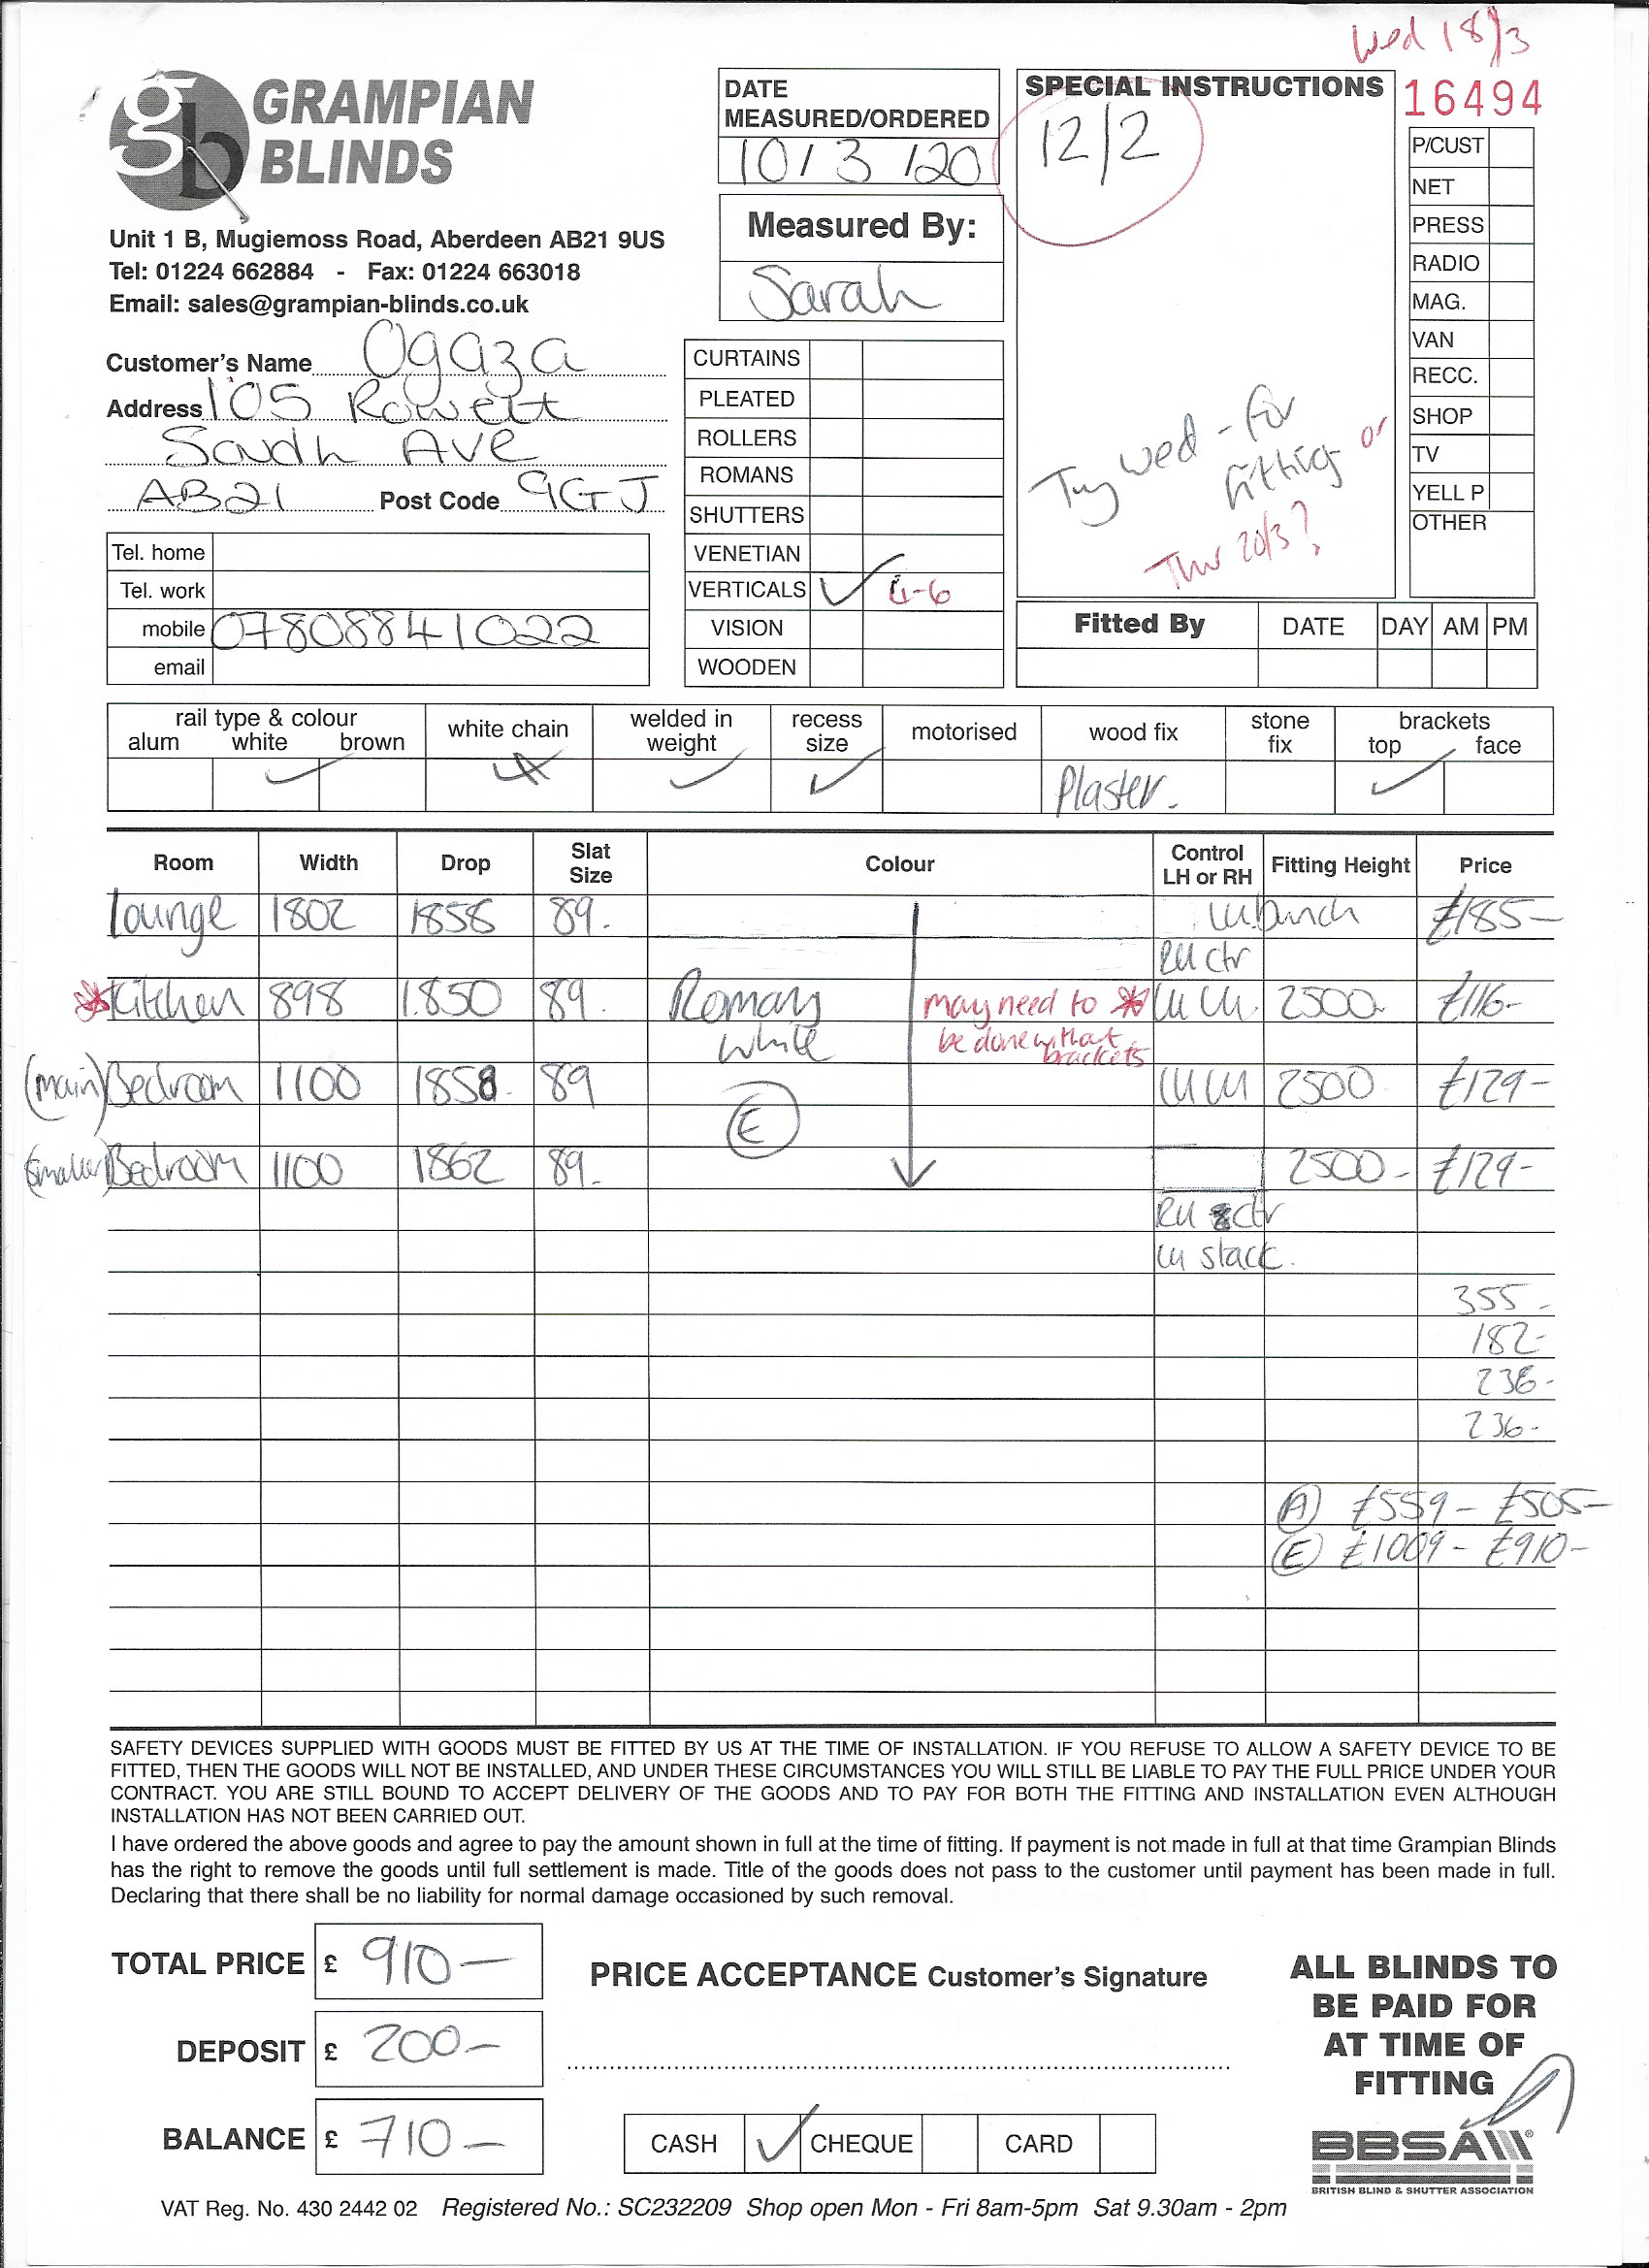 Wed 18/3
GRAMPIAN
BLINDS
Unit 1 B, Mugiemoss Road, Aberdeen AB21 9US
Tel: 01224 662884 - Fax: 01224 663018
Email: sales@grampian-blinds.co.uk
DATE
MEASURED/ORDERED
10/3/20
Measured By:
Sarah
SPECIAL INSTRUCTIONS
12/2
Try wed - for
fitting or
Thur 20/3?
16494
P/CUST
NET
PRESS
RADIO
MAG.
VAN
RECC.
SHOP
TV
YELL P
OTHER
Customer's Name Ogaza
Address 105 Rowett
South Ave
AB21 Post Code 9GJ
Tel. home
Tel. work
mobile 07808841022
email
CURTAINS
PLEATED
ROLLERS
ROMANS
SHUTTERS
VENETIAN
VERTICALS ✓ 4-6
VISION
WOODEN
Fitted By DATE DAY AM PM
rail type & colour
alum white brown
white chain
welded in weight
recess size
motorised
wood fix
stone fix
brackets
top face
Plaster.
Room Width Drop Slat Size Colour Control LH or RH Fitting Height Price
Lounge 1802 1858 89. LH bunch £185-
RH ctr
Kitchen 898 1850 89. Romany may need to LH LH 2500- £116-
white be done without brackets
(main) Bedroom 1100 1858 89 LH LH 2500 £129-
E
(smaller) Bedroom 1100 1862 89. 2500- £129-
RH ctr
LH stack.
355-
182-
236-
236-
A £559- £505-
E £1009- £910-
SAFETY DEVICES SUPPLIED WITH GOODS MUST BE FITTED BY US AT THE TIME OF INSTALLATION. IF YOU REFUSE TO ALLOW A SAFETY DEVICE TO BE
FITTED, THEN THE GOODS WILL NOT BE INSTALLED, AND UNDER THESE CIRCUMSTANCES YOU WILL STILL BE LIABLE TO PAY THE FULL PRICE UNDER YOUR
CONTRACT. YOU ARE STILL BOUND TO ACCEPT DELIVERY OF THE GOODS AND TO PAY FOR BOTH THE FITTING AND INSTALLATION EVEN ALTHOUGH
INSTALLATION HAS NOT BEEN CARRIED OUT.
I have ordered the above goods and agree to pay the amount shown in full at the time of fitting. If payment is not made in full at that time Grampian Blinds
has the right to remove the goods until full settlement is made. Title of the goods does not pass to the customer until payment has been made in full.
Declaring that there shall be no liability for normal damage occasioned by such removal.
TOTAL PRICE £ 910-
DEPOSIT £ 200-
BALANCE £ 710-
PRICE ACCEPTANCE Customer's Signature
CASH ✓ CHEQUE CARD
ALL BLINDS TO
BE PAID FOR
AT TIME OF
FITTING
BBSA
BRITISH BLIND & SHUTTER ASSOCIATION
VAT Reg. No. 430 2442 02 Registered No.: SC232209 Shop open Mon - Fri 8am-5pm Sat 9.30am - 2pm